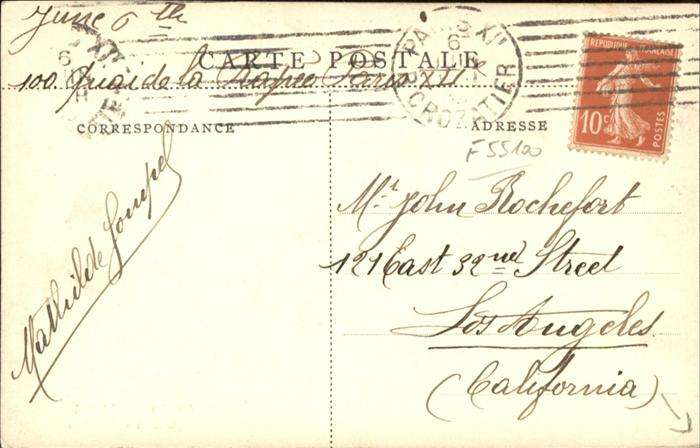 June 6th
CARTE POSTALE
100 Quai de la Rapée Paris XII
CORRESPONDANCE
ADRESSE
F 55100
REPUBLIQUE FRANÇAISE
10c
POSTES
PARIS XII
CROZATIER
Mr. John Rochefort
121 East 32nd Street
Los Angeles
(California)
Mathilde